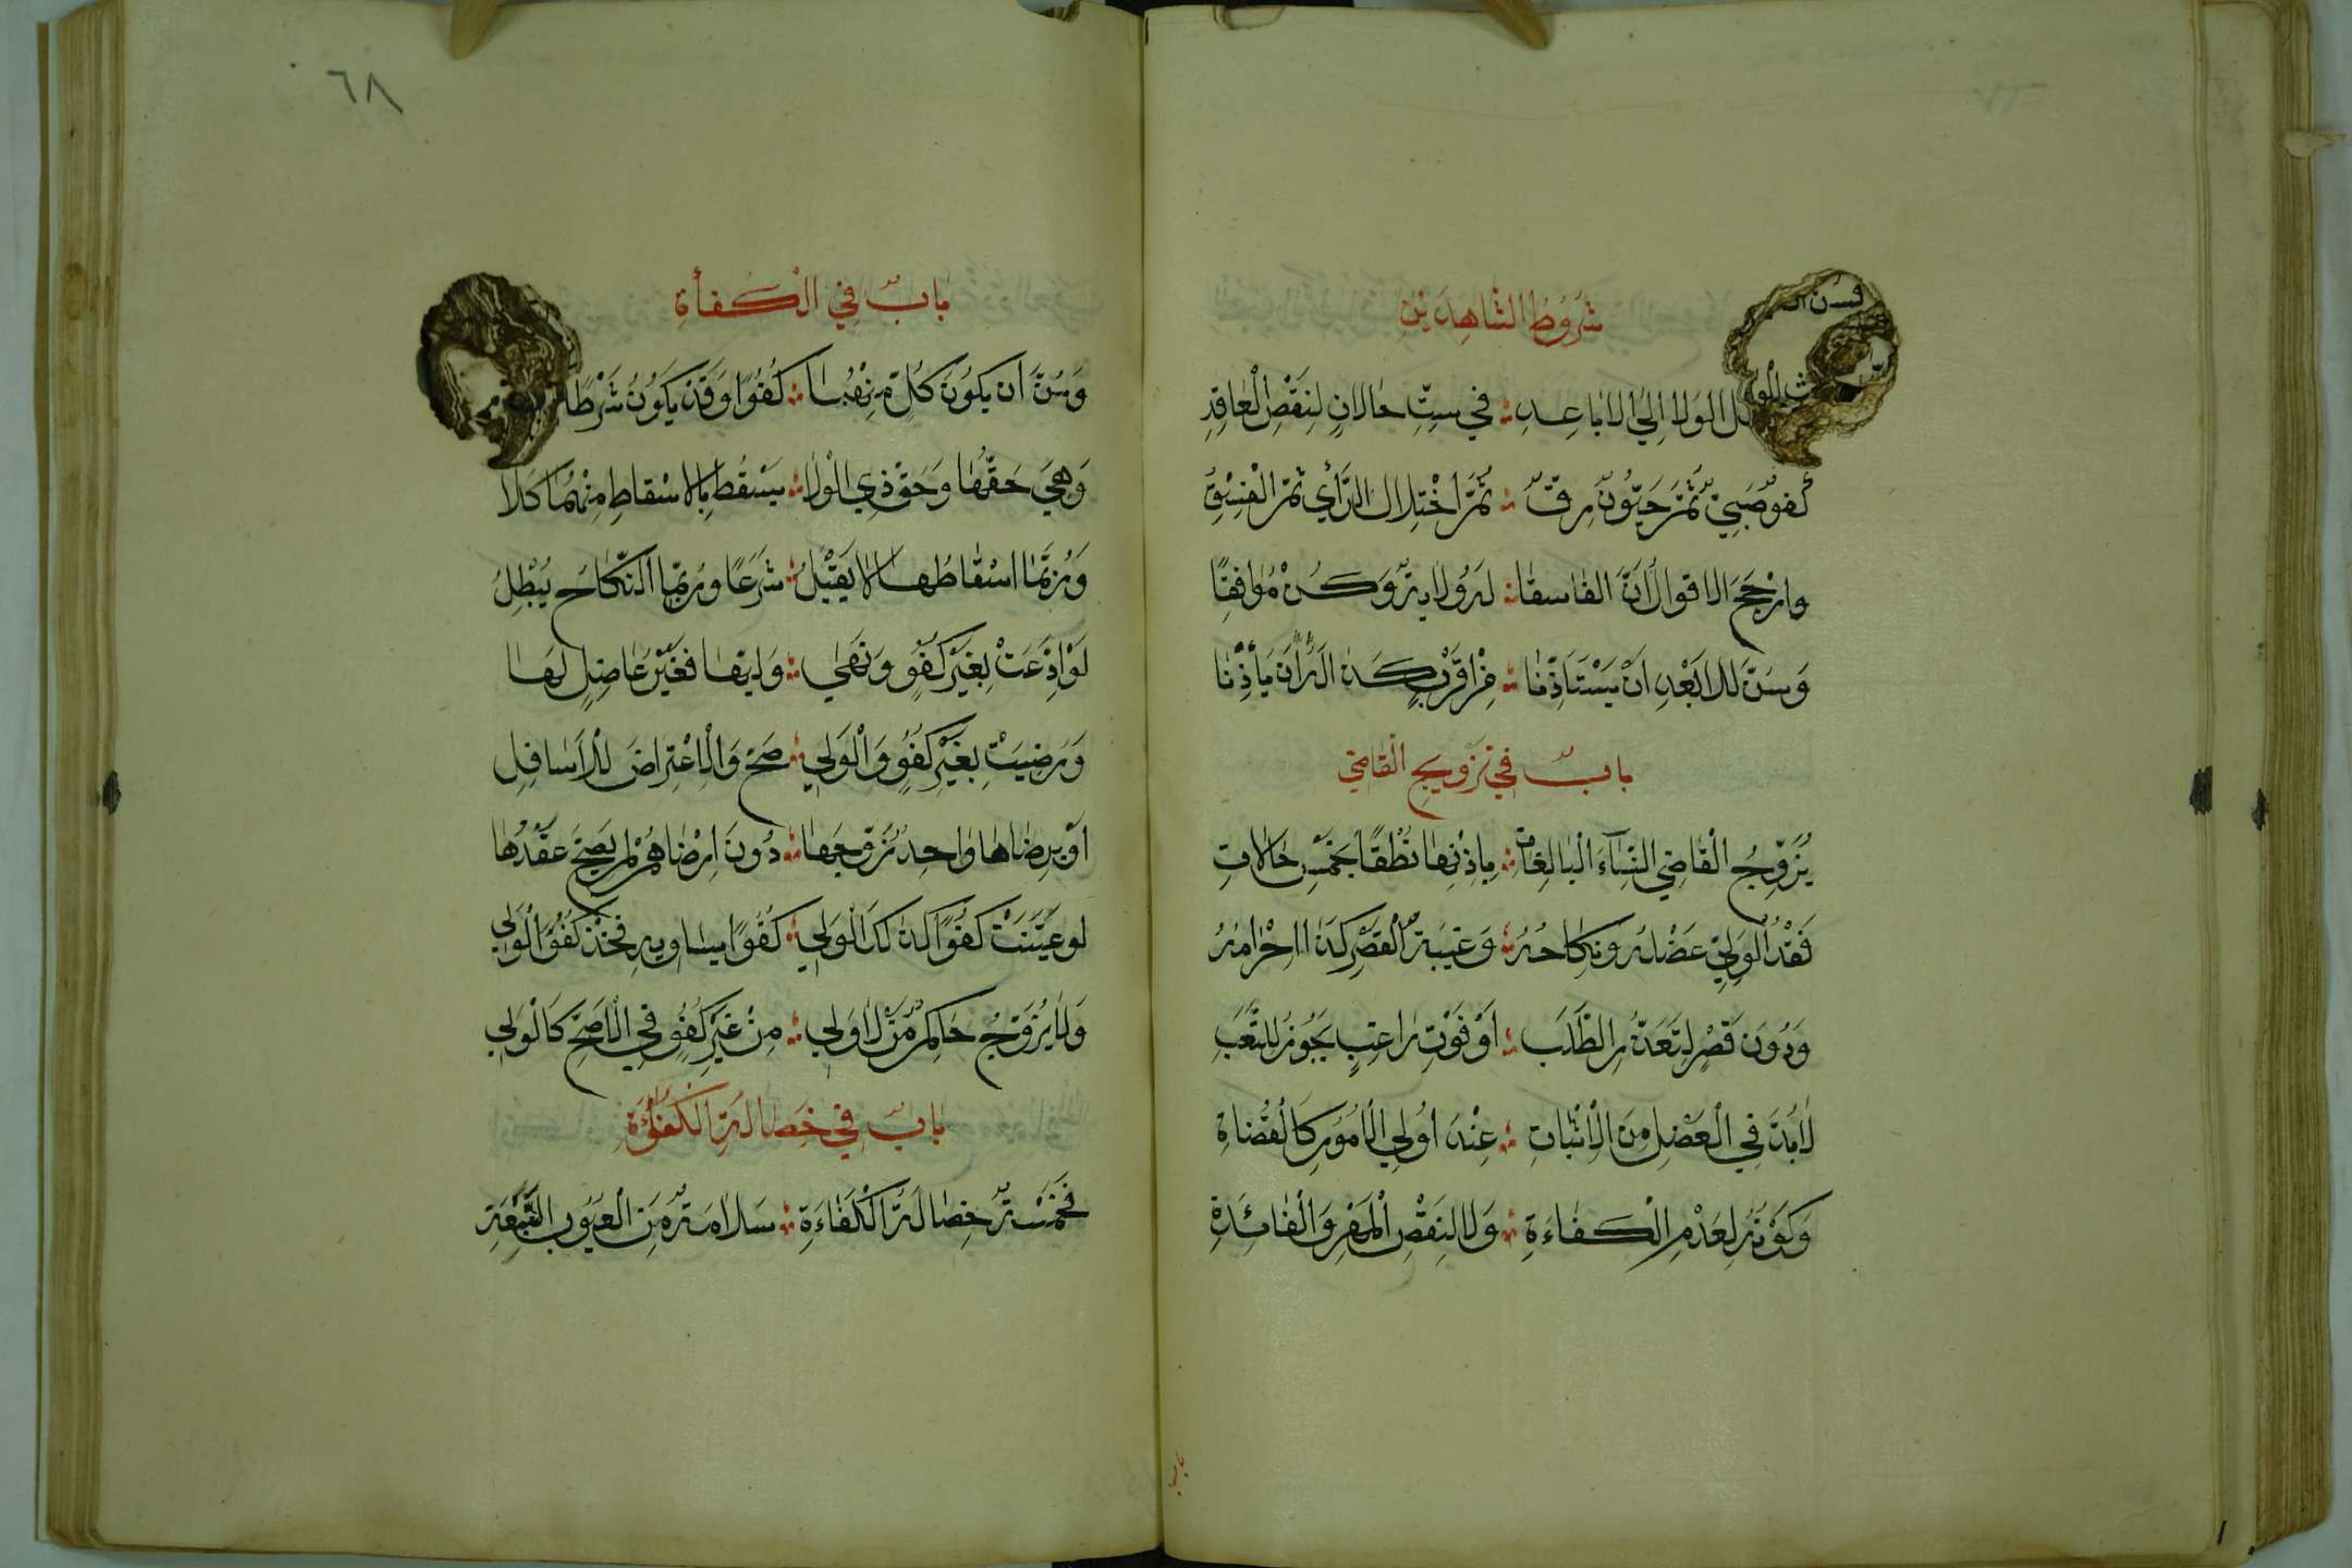 شروط الشاهدين
الولا إلى الاباعد ؛ في ست حالات لنقص العاقد
ثم اختلال الرأي ثم الفسق
وارجح الاقوال أن الفاسقا ؛ له ولاية وكن موافقا
وسن للابعد ان يستاذنا ؛ من اقرب كذا له ان ياذنا
باب في تزويج القاضي
يزوج القاضي النساء البالغات ؛ باذنها نطقا بخمس حالات
فقد الولي عضله ونكاحه ؛ وغيبة القصر كذا احرامه
ودون قصر لتعذر الطلب ؛ او فوت راغب يجوز للتعب
لابد في العضل من الاثبات ؛ عند اولي الامور كالقضاة
وكونه لعدم الكفاءة ؛ ولا لنقص المهر والفائدة
باب
٦٨
باب في الكفأة
وسن ان يكون كل منهما ؛ كفوا وقد يكون شرطا
وهي حقها وحق ذي الولا ؛ يسقط بالاسقاط منهما كلا
وربما اسقاطها لا يقبل ؛ شرعا وربما النكاح يبطل
لو اذعت بغير كفو ونهى ؛ وليها فغير عاضل لها
ورضيت بغير كفو والولي ؛ صح والاعتراض للاسافل
او برضاها واحد زوجها ؛ دون ارضاهم لم يصح عقدها
لو عينت كفوا كذلك الولي ؛ كفوا يساويه فخذ كفو الولي
ولا يزوج حاكم من لا ولي ؛ من غير كفو في الاصح كالولي
باب في خصالة الكفاءة
فخمسة خصالة الكفاءة ؛ سلامة من العيوب